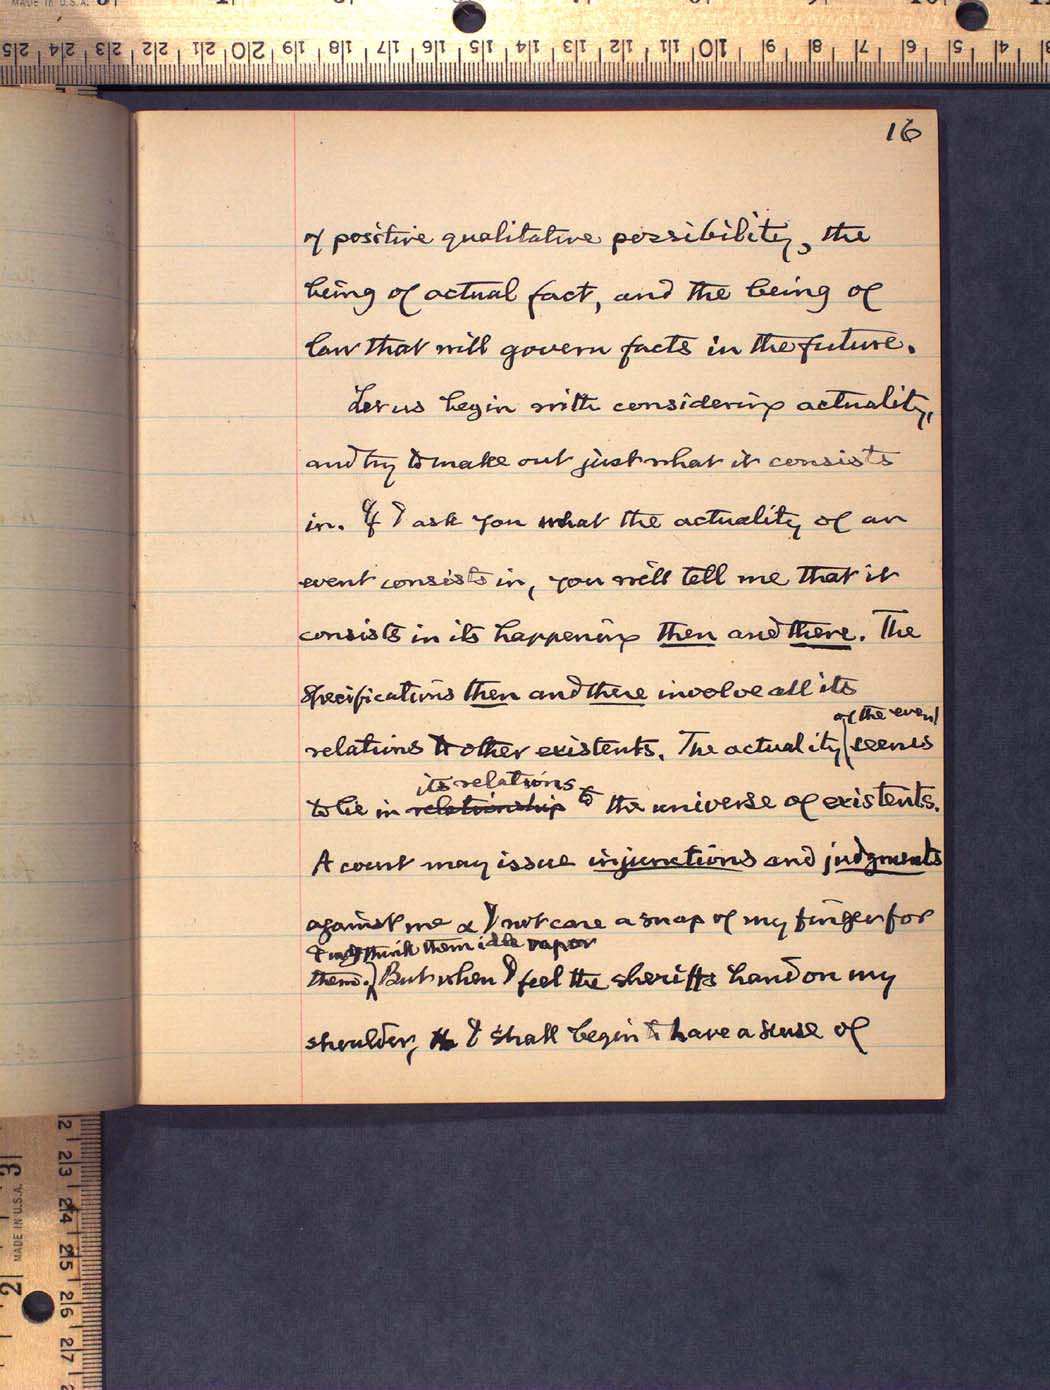 16
of positive qualitative possibility, the
being of actual fact, and the being of
law that will govern facts in the future.
Let us begin with considering actuality,
and try to make out just what it consists
in. If I ask you what the actuality of an
event consists in, you will tell me that it
consists in its happening then and there. The
specifications then and there involve all its
relations to other existents. The actuality of the event seems
to lie in relationship its relations to the universe of existents.
A court may issue injunctions and judgments
against me & I not care a snap of my finger for
them. I may think them idle vapor But when I feel the sheriff's hand on my
shoulder, I shall begin to have a sense of
MADE IN U.S.A.
25 24 23 22 21 20 19 18 17 16 15 14 13 12 11 10 9 8 7 6 5 4 3
MADE IN U.S.A.
2 3
22 23 24 25 26 27